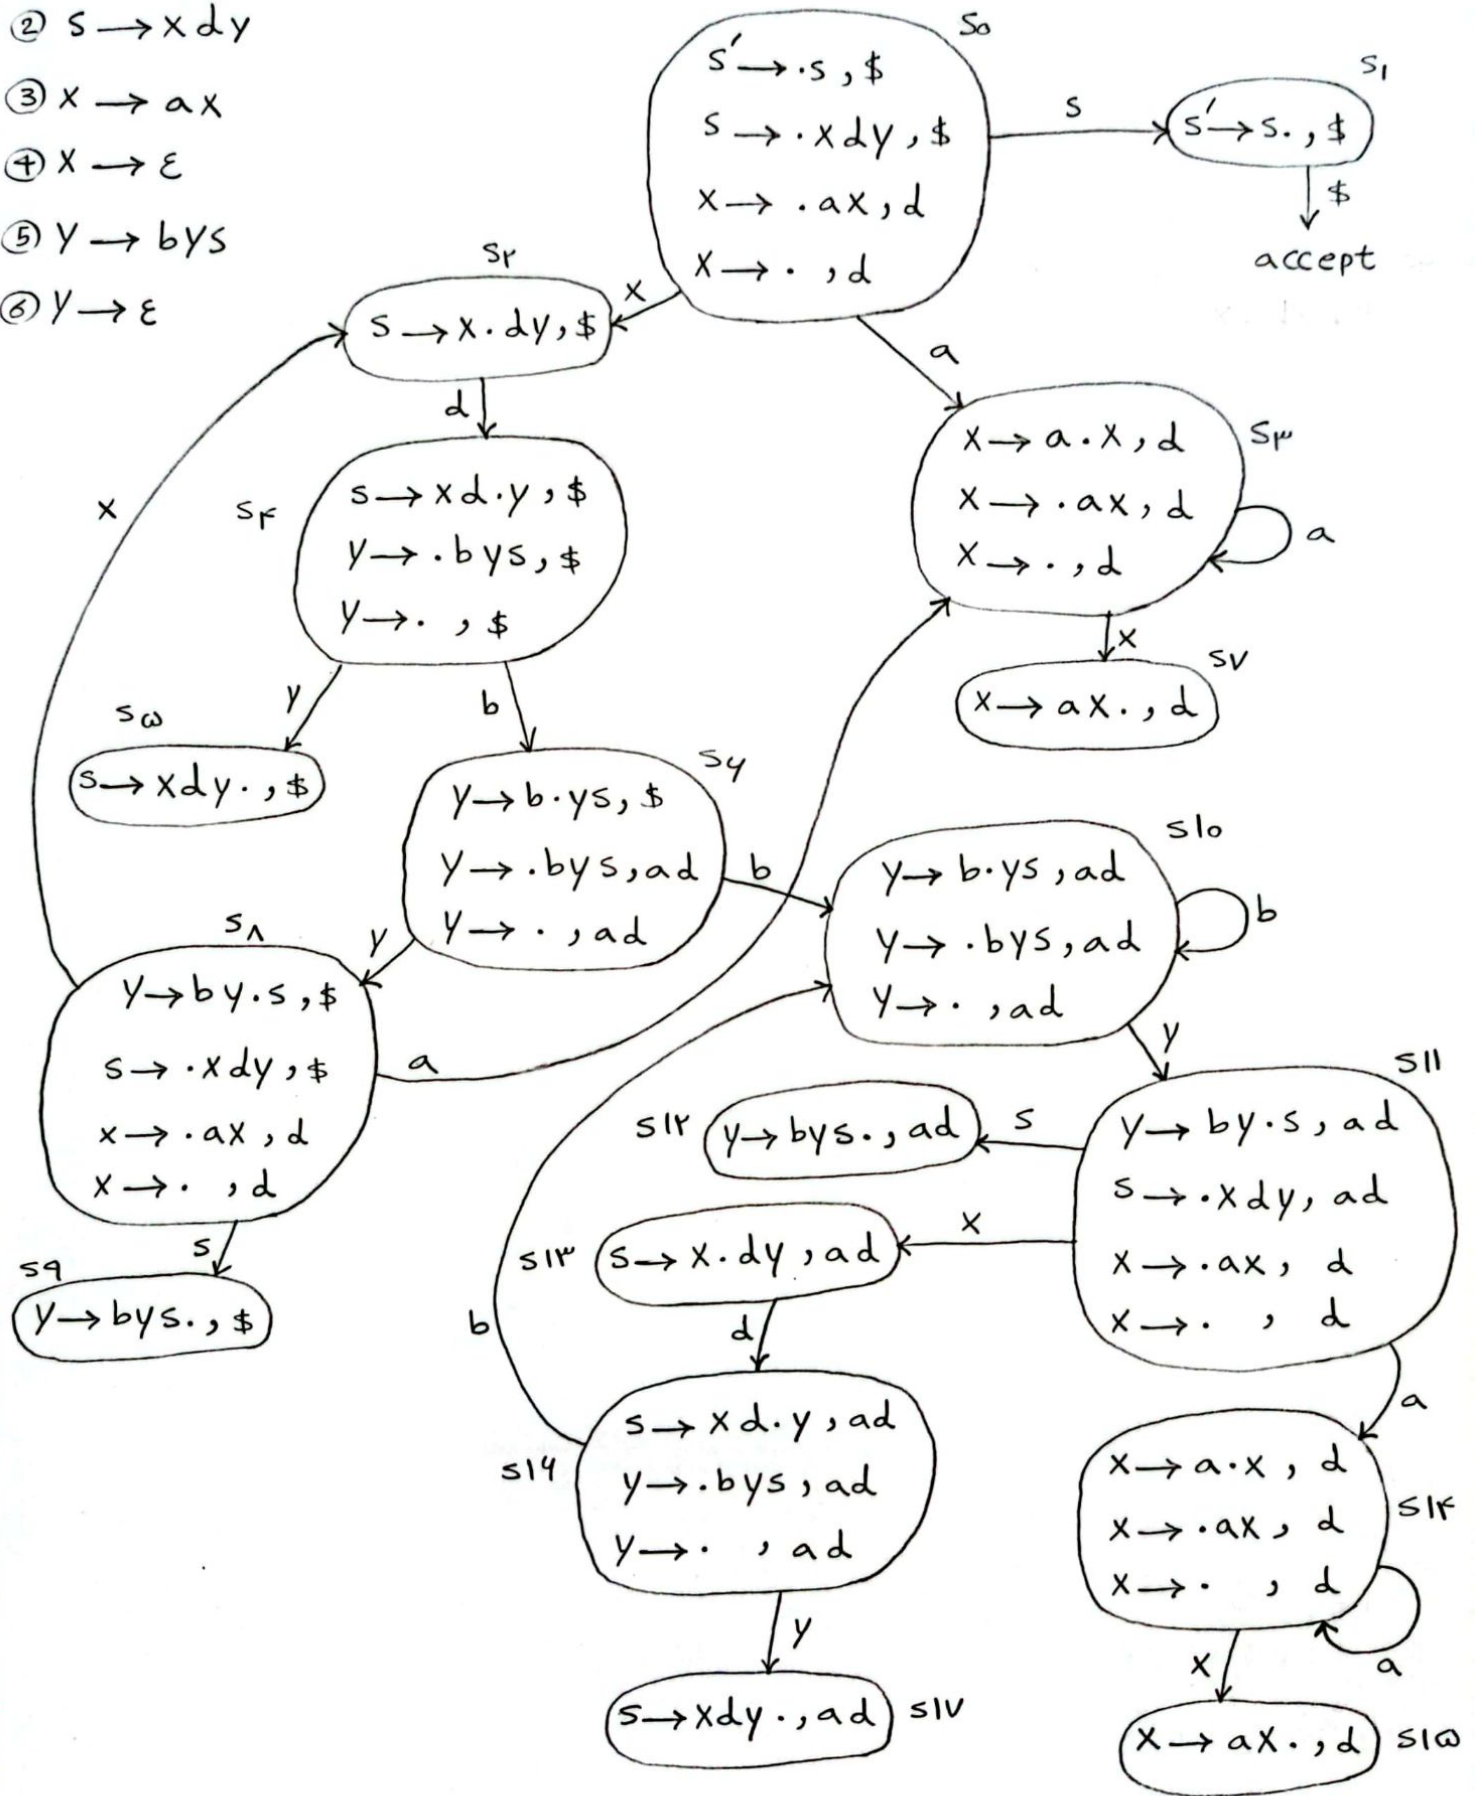 ② S → X d Y
③ X → a X
④ X → ε
⑤ Y → b Y S
⑥ Y → ε
S0
S' → . S , $
S → . X d Y , $
X → . a X , d
X → . , d
S
S۱
S' → S . , $
$
accept
X
S۲
S → X . d Y , $
d
a
S۳
X → a . X , d
X → . a X , d
X → . , d
a
X
S۷
X → a X . , d
S۴
S → X d . Y , $
Y → . b Y S , $
Y → . , $
X
Y
b
S۵
S → X d Y . , $
S۶
Y → b . Y S , $
Y → . b Y S , a d
Y → . , a d
b
Y
S۱۰
Y → b . Y S , a d
Y → . b Y S , a d
Y → . , a d
b
Y
S۸
Y → b Y . S , $
S → . X d Y , $
X → . a X , d
X → . , d
a
S
S۹
Y → b Y S . , $
S۱۱
Y → b Y . S , a d
S → . X d Y , a d
X → . a X , d
X → . , d
S
S۱۲
Y → b Y S . , a d
X
S۱۳
S → X . d Y , a d
d
b
S۱۶
S → X d . Y , a d
Y → . b Y S , a d
Y → . , a d
Y
S → X d Y . , a d
S۱۷
a
X → a . X , d
X → . a X , d
X → . , d
S۱۴
a
X
X → a X . , d
S۱۵